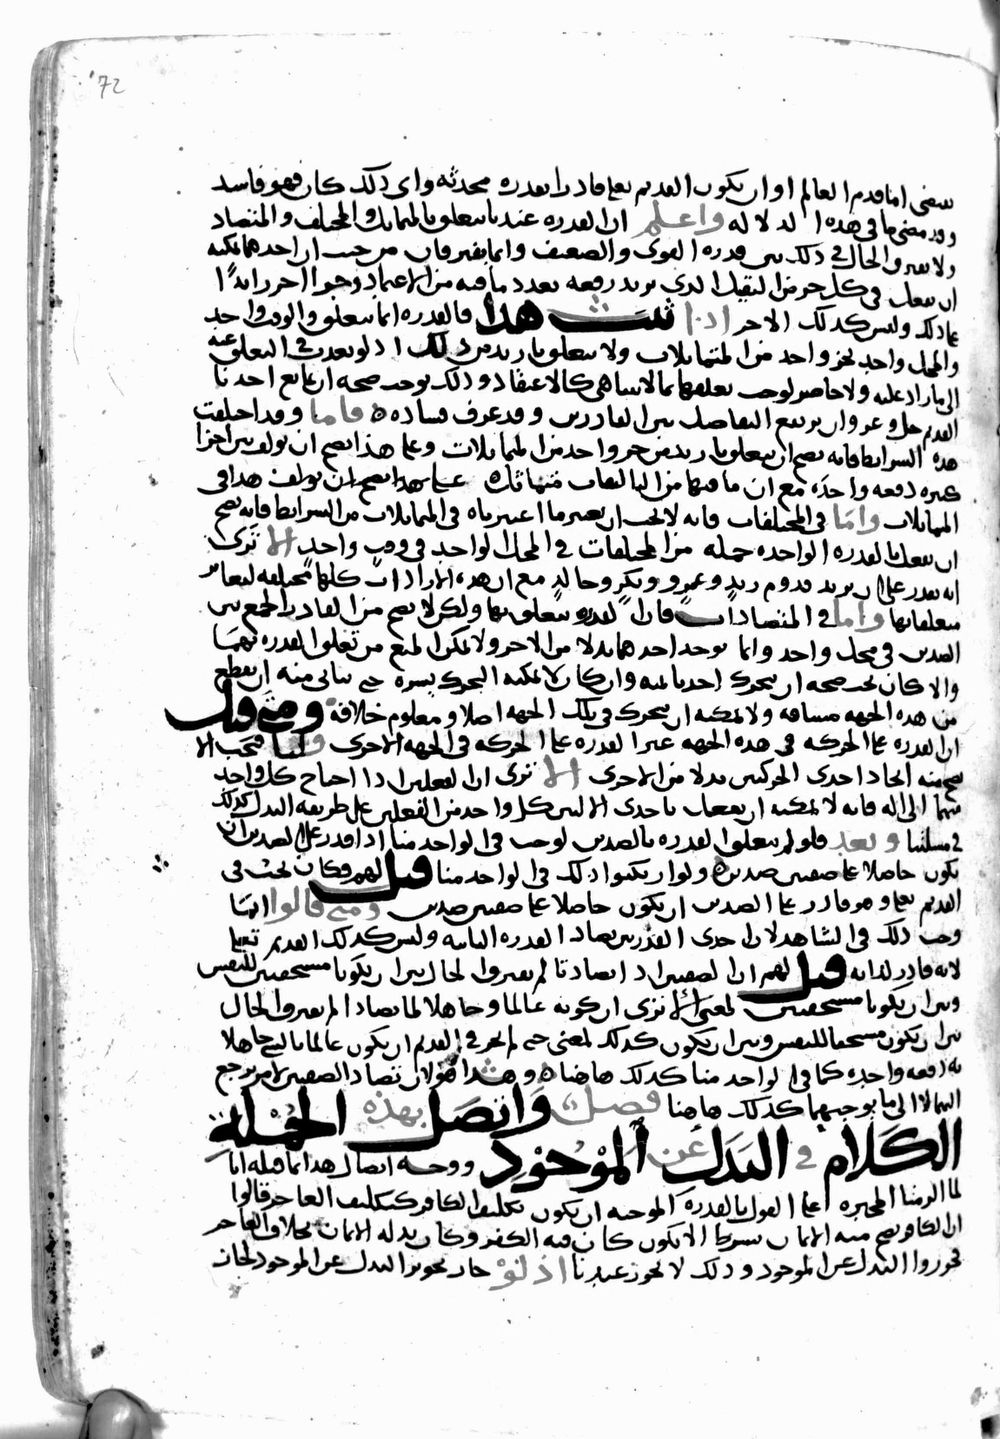 72
يقتضي اما قدم العالم او ان يكون القديم تعلى قادرا بقدره محدثه واي ذلك كان فهو فاسد
وقد مضى ما في هذه الدلاله واعلم ان القدره عندنا تتعلق بالمتماثل والمختلف والمتضاد
ولا يفترق الحال في ذلك بين قدره القوي والضعيف وانما يفترقان من حيث ان احدهما يمكنه
ان يفعل في كل جزء من الثقيل الذي يريد رفعه بعدد ما فيه من الاعتماد وجزوا اخر زايدا
على ذلك وليس كذلك الاخر اذا ثبت هذا فالقدره انما تتعلق والوقت واحد
والمحل واحد بجزو واحد من المتماثلات ولا تتعلق بازيد من ذلك اذ لو تعدت في التعلق عنه
الى ما زاد عليه ولا حاصر لوجب تعلقها بما لا يتناهى كالاعتقاد وذلك يوجب صحه ان يمانع احدنا
القديم جل وعز وان يرتفع التفاضل بين القادرين وقد عرف فساده فاما وقد اختلفت
هذه الشرايط فانه يصح ان يتعلق بازيد من جزو واحد من المتماثلات وعلى هذا يصح ان يولف بين اجزا
كثيره دفعه واحده مع ان ما فيها من التاليفات متماثله على هذا يصح ان يولف هذا في
المتماثلات واما في المختلفات فانه لا يجب ان يعتبر ما اعتبرناه في المتماثلات من الشرايط فانه يصح
ان يفعل بالقدره الواحده جمله من المختلفات في المحل الواحد في وقت واحد الا ترى
انه يقدر على ان يريد قدوم زيد وعمرو وبكر وخالد مع ان هذه الارادات كلها مختلفه لتغاير
متعلقاتها واما في المتضادات فان القدره تتعلق بها ولكن لا يصح من القادر الجمع بين
الضدين في محل واحد وانما يوجد احدهما بدلا من الاخر ولا يمكن المنع من تعلق القدره بهما
والا كان يجب صحه ان يتحرك احدنا يمنه وان كان لا يمكنه التحرك يسره حتى يتاتى منه ان يقطع
من هذه الجهه مسافه ولا يمكنه ان يتحرك في تلك الجهه اصلا ومعلوم خلافه ومتى قيل
ان القدره على الحركه في هذه الجهه غير القدره على الحركه في الجهه الاخرى قلنا فيجب الا
يصح منه ايجاد احدى الحركتين بدلا من الاخرى الا ترى ان الفعلين اذا احتاج كل واحد
منهما الى اله فانه لا يمكنه ان يفعل باحدى الالتين كل واحد من الفعلين على طريقه البدل كذلك
في مسئلتنا وبعد فلو لم تتعلق القدره بالضدين لوجب في الواحد منا اذا قدر على الضدين ان
يكون حاصلا على صفتين ضدين ولو ارتكبوا ذلك في الواحد منا قيل لهم وكان يجب في
القديم تعلى وهو قادر على الضدين ان يكون حاصلا على صفتين ضدين ومتى قالوا انما
وجب ذلك في الشاهد لان احدى القدرتين تضاد القدره الثانيه وليس كذلك القديم تعلى
لانه قادر لذاته قيل لهم ان الصفتين اذا تضادتا لم يفترق الحال بين ان يكونا مستحقتين للنفس
وبين ان يكونا مستحقتين لمعنى الا ترى ان كونه عالما وجاهلا لما تضادا لم يفترق الحال
بين ان يكون مستحقا للنفس وبين ان يكون كذلك لمعنى حتى لم يجز في القديم ان يكون عالما بالشي جاهلا
به دفعه واحده كما في الواحد منا كذلك هاهنا وهذا هو لان تضاد الصفتين لامر يرجع
اليهما لا الى ما يوجبهما كذلك هاهنا فصل واتصل بهذه الجمله
الكلام في البدل عن الموجود ووجه اتصال هذا بما قبله انا
لما الزمنا المجبره على القول بالقدره الموجبه ان يكون تكليف الكافر كتكليف العاجز قالوا
ان الكافر يصح منه الايمان بشرط الا يكون كان فيه الكفر وكان بدله الايمان بخلاف العاجز
فجوزوا البدل عن الموجود وذلك لا يجوز عندنا اذ لو جاز تجويز البدل عن الموجود لجاز